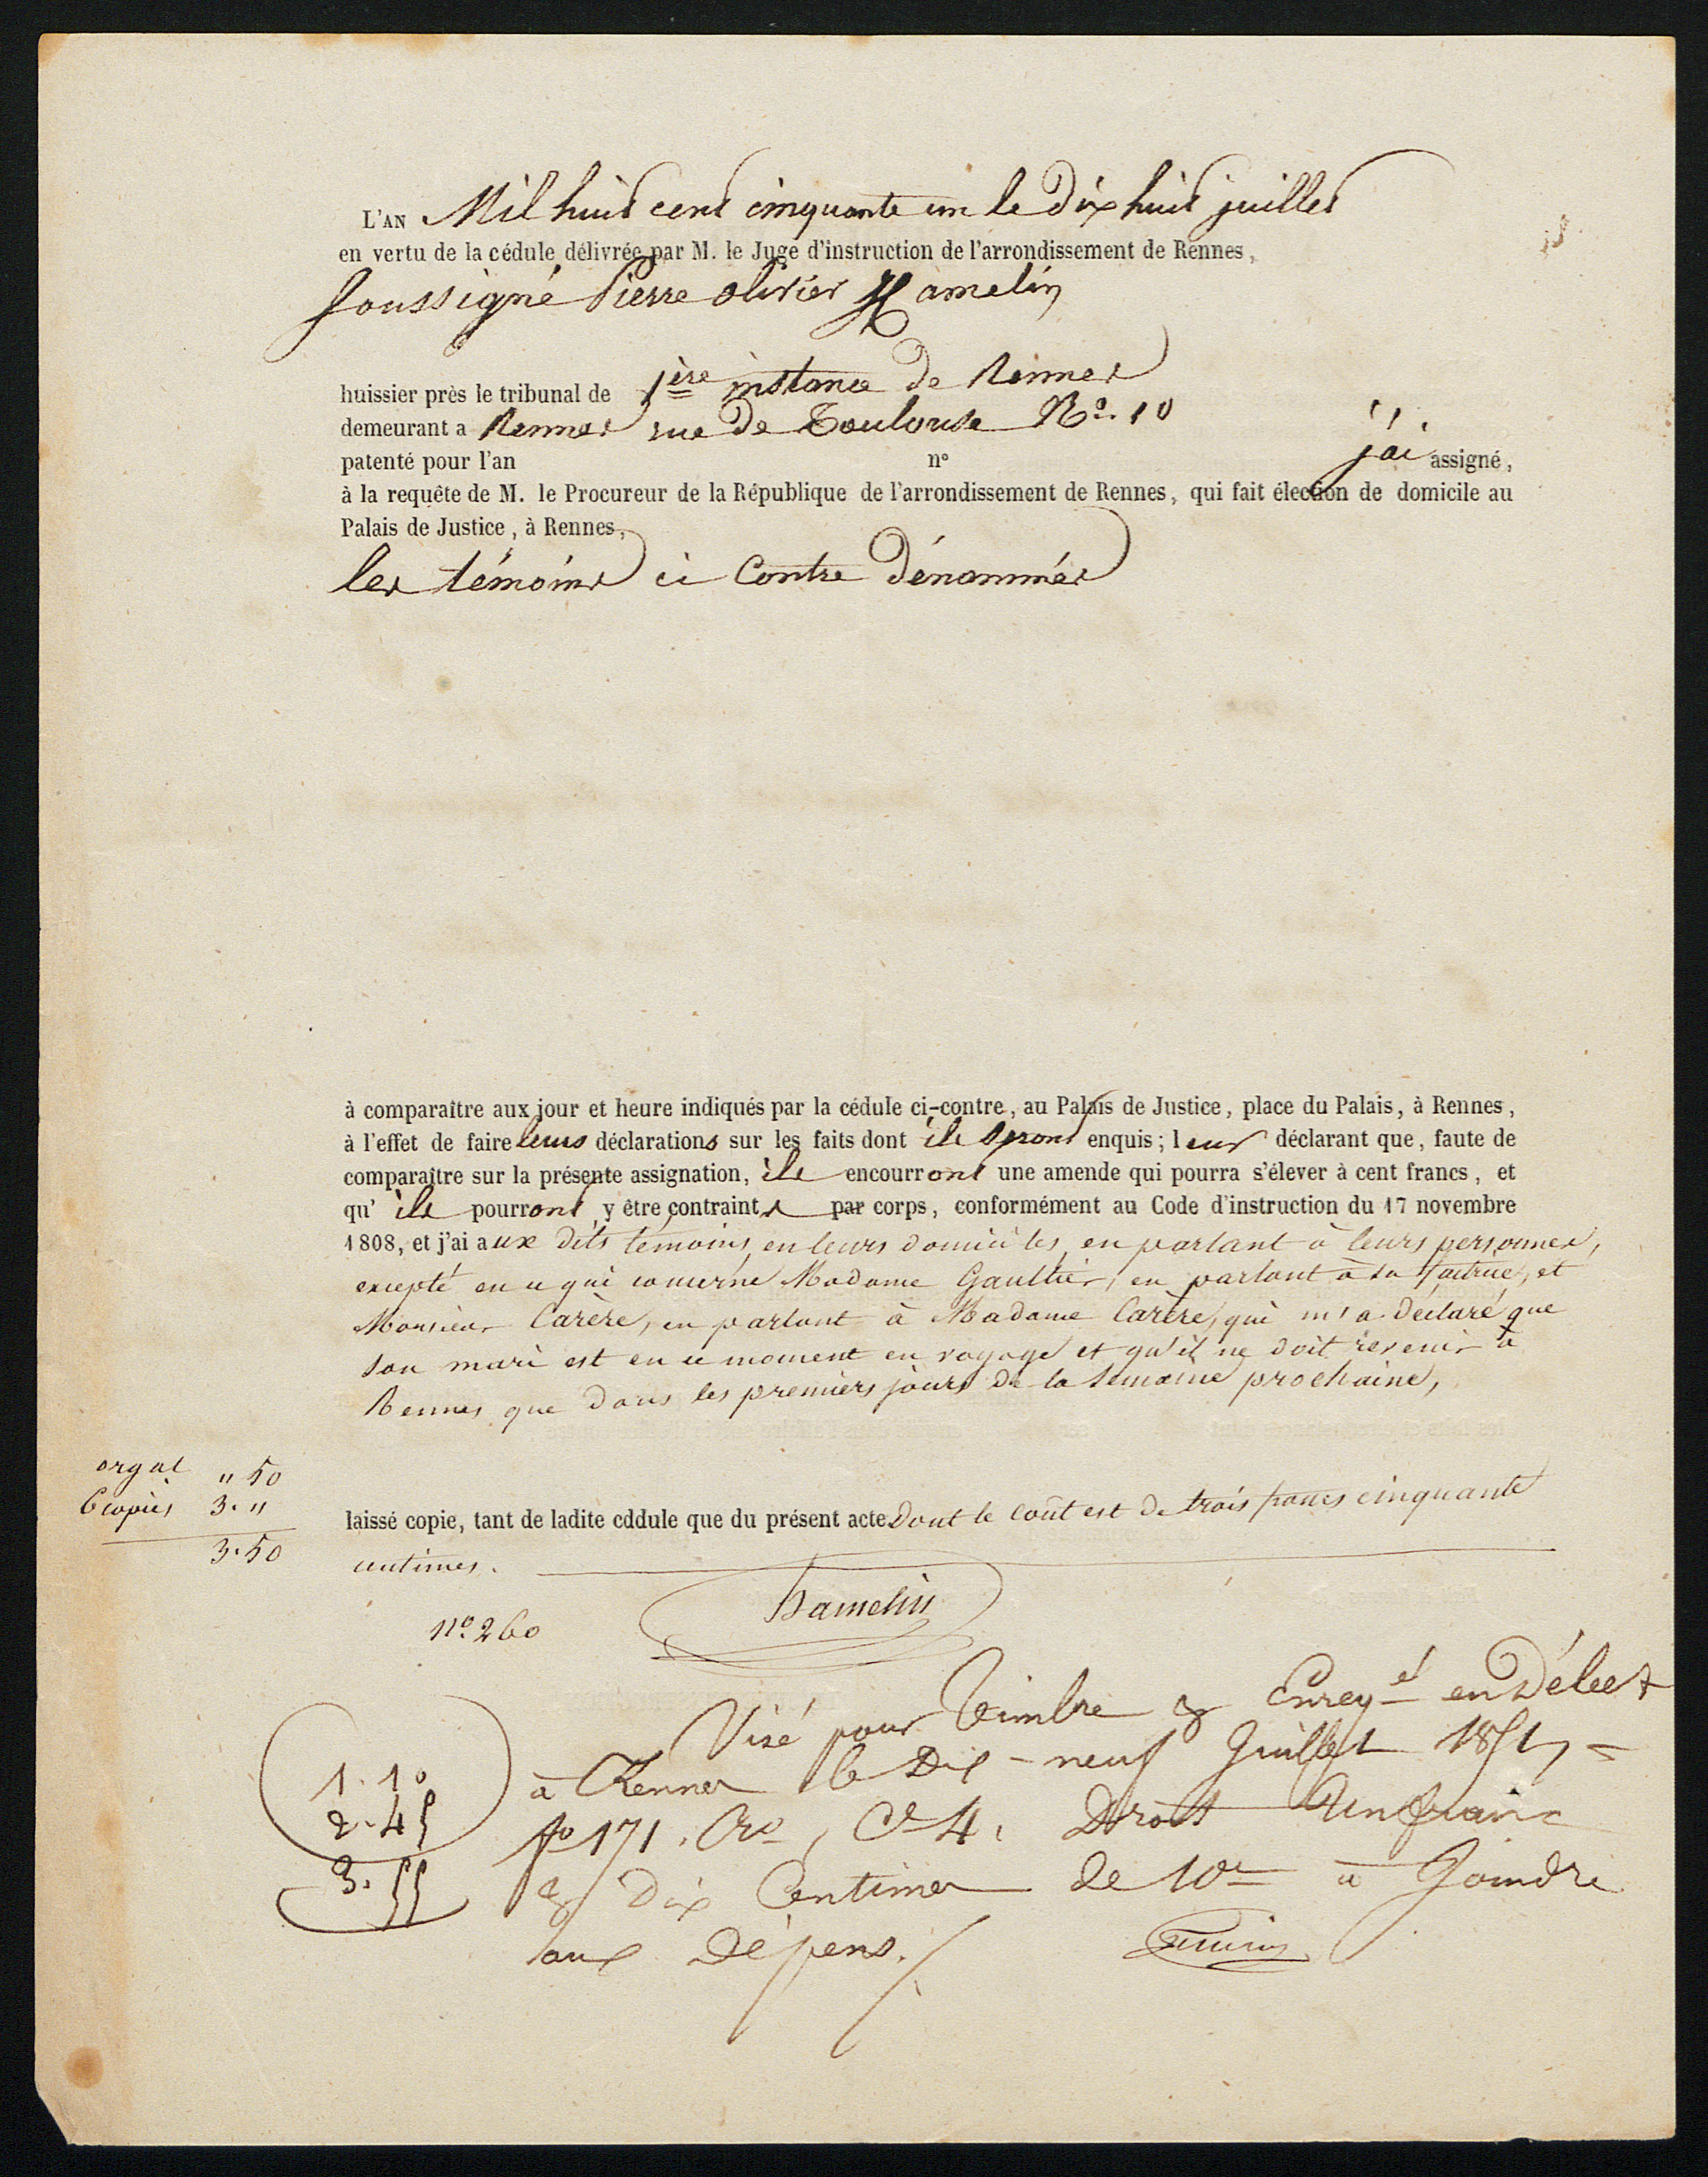 L'AN Mil huit cent cinquante un le dix huit juillet
en vertu de la cédule délivrée par M. le Juge d'instruction de l'arrondissement de Rennes,
Soussigné Pierre Olivier Hamelin
huissier près le tribunal de 1ère instance de Rennes
demeurant a Rennes rue de Toulouse No. 10
patenté pour l'an n° j'ai assigné,
à la requête de M. le Procureur de la République de l'arrondissement de Rennes, qui fait élection de domicile au
Palais de Justice, à Rennes,
les témoins ci contre dénommés
à comparaître aux jour et heure indiqués par la cédule ci-contre, au Palais de Justice, place du Palais, à Rennes,
à l'effet de faire leurs déclarations sur les faits dont ils seront enquis; leur déclarant que, faute de
comparaître sur la présente assignation, ils encourront une amende qui pourra s'élever à cent francs, et
qu' ils pourront y être contraints par corps, conformément au Code d'instruction du 17 novembre
1808, et j'ai aux dits témoins, en leurs domiciles, en parlant à leurs personnes,
excepté en ce qui concerne Madame Gaultier, en parlant à sa et
Monsieur Carère, en parlant à Madame Carère, qui m'a déclaré que
son mari est en ce moment en voyage et qu'il ne doit revenir à
Rennes que dans les premiers jours de la semaine prochaine,
orgal " 50
6 copies 3. "
3. 50
laissé copie, tant de ladite cddule que du présent acte Dont le coût est de trois francs cinquante
centimes.
Hamelin
no. 260
Visé pour Timbre & Enregé en Débet
à Rennes le Dix-neuf Juillet 1851,
fo 171. Ro, Ce 4. Droit Un franc
& Dix Centimes de 10e à Joindre
aux Dépens./
1. 10
2. 45
3. 55